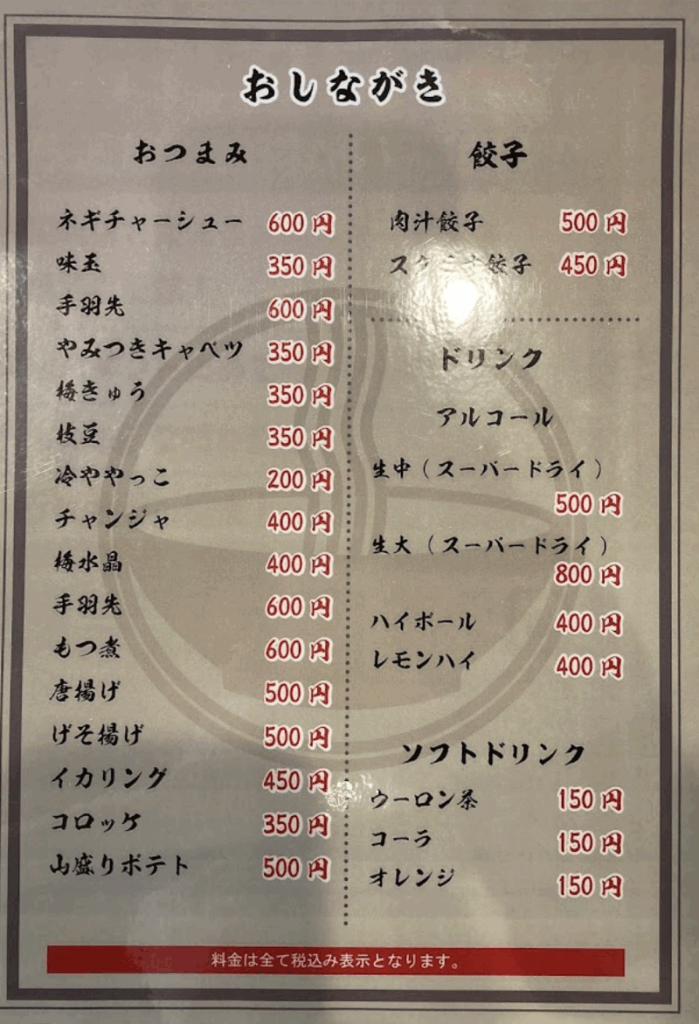 おしながき
おつまみ
ネギチャーシュー 600円
味玉 350円
手羽先 600円
やみつきキャベツ 350円
梅きゅう 350円
枝豆 350円
冷ややっこ 200円
チャンジャ 400円
梅水晶 400円
手羽先 600円
もつ煮 600円
唐揚げ 500円
げそ揚げ 500円
イカリング 450円
コロッケ 350円
山盛りポテト 500円
餃子
肉汁餃子 500円
餃子 450円
ドリンク
アルコール
生中(スーパードライ)
500円
生大(スーパードライ)
800円
ハイボール 400円
レモンハイ 400円
ソフトドリンク
ウーロン茶 150円
コーラ 150円
オレンジ 150円
料金は全て税込み表示となります。